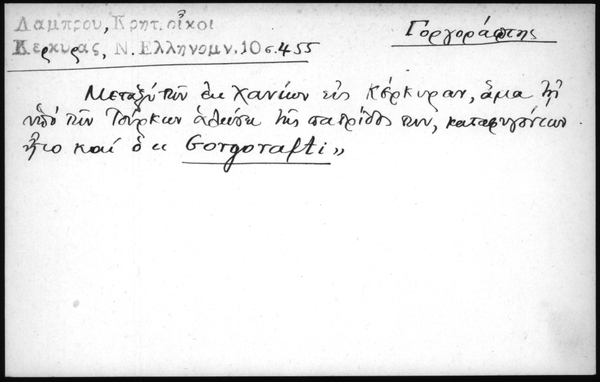 Λαμπρου, Κρητ. οἶκοι
Κερκυρας, Ν. Ελληνομν. 10 σ. 455
Γοργοράφτης
Μεταξύ τῶν ἐκ Χανίων εἰς Κέρκυραν, ἅμα τῇ
ὑπό τῶν Τούρκων ἁλώσει τῆς πατρίδος των, καταφυγόντων
ἦτο καί ὁ « Gorgorafti »